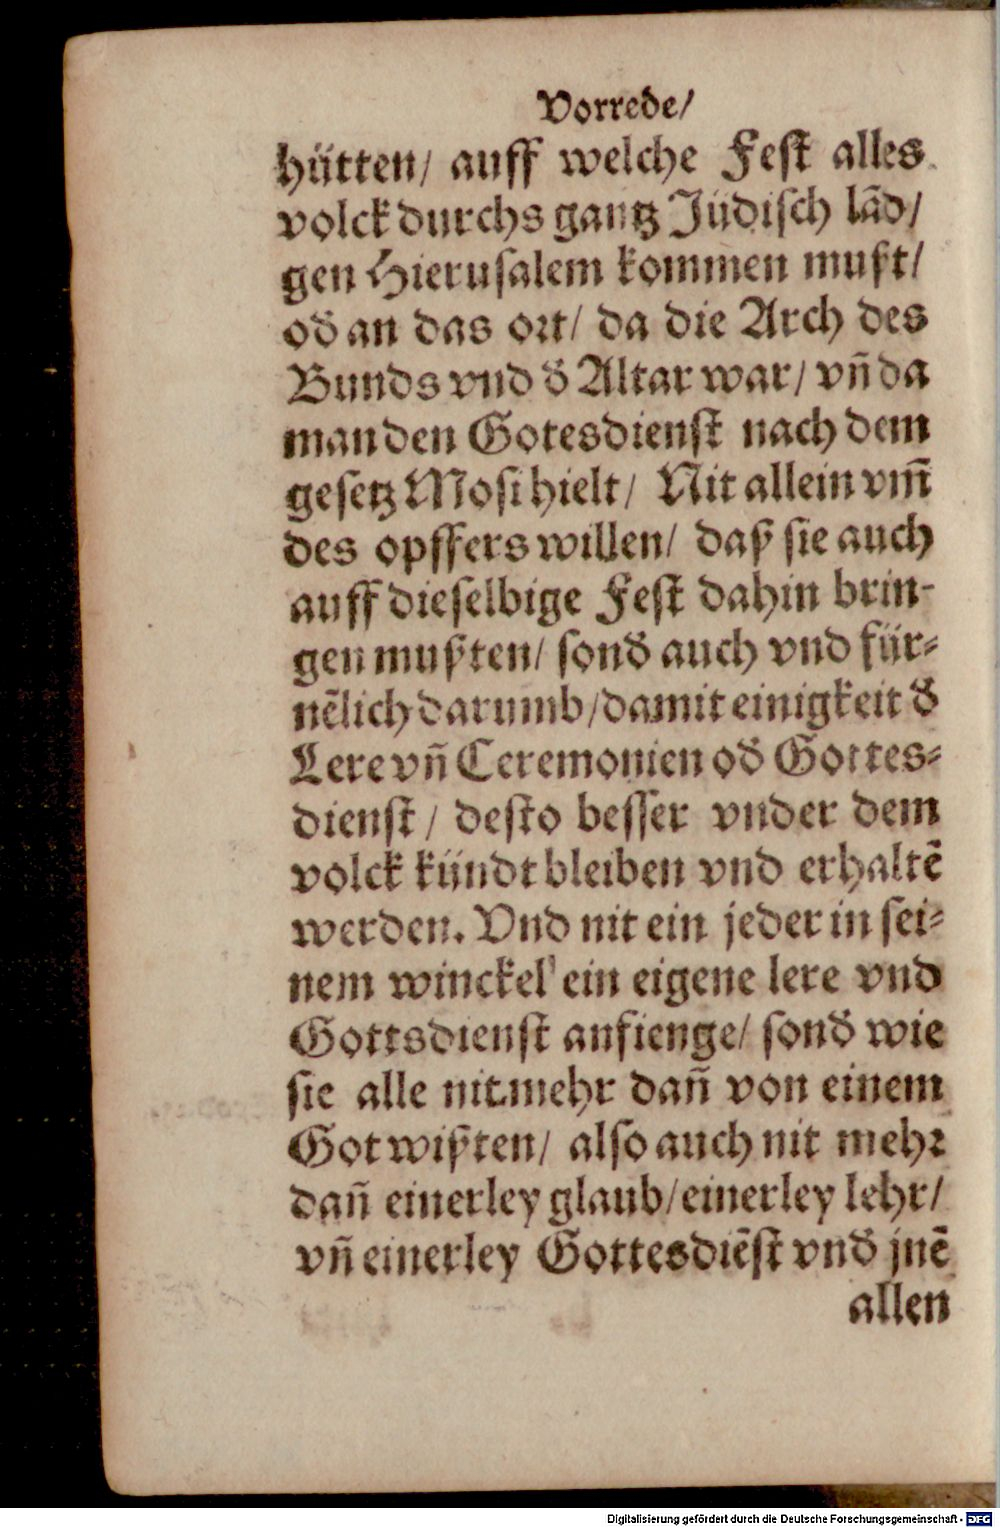 Vorrede/
hütten/ auff welche Feſt alles
volck durchs gantz Jüdiſch lãd/
gen Hieruſalem kommen muſt/
od̃ an das ort/ da die Arch des
Bunds vnd d̃ Altar war/ vñ da
man den Gotesdienſt nach dem
geſetz Moſi hielt/ Nit allein vm̃
des opffers willen/ daß ſie auch
auff dieſelbige Feſt dahin brin-
gen mußten/ ſond̃ auch vnd für-
nẽlich darumb/damit einigkeit d̃
Lere vñ Ceremonien od̃ Gottes-
dienſt/ deſto beſſer vnder dem
volck kündt bleiben vnd erhaltẽ
werden. Vnd nit ein jeder in ſei-
nem winckel ein eigene lere vnd
Gottsdienſt anfienge/ ſond̃ wie
ſie alle nit mehr dañ von einem
Got wißten/ alſo auch nit mehr
dañ einerley glaub/einerley lehr/
vñ einerley Gottesdiẽſt vnd̃ jnẽ
allen
Digitalisierung gefördert durch die Deutsche Forschungsgemeinschaft - DFG